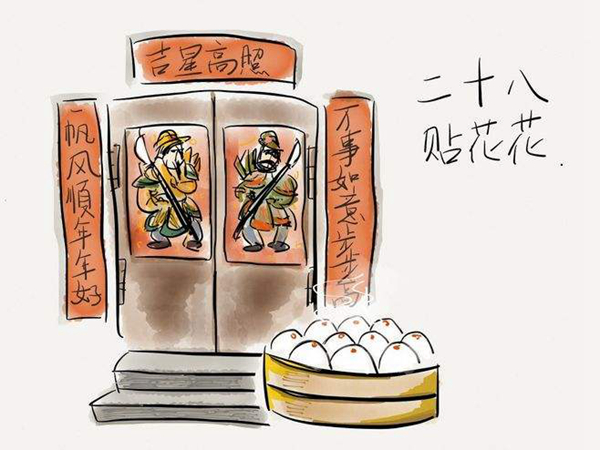 吉星高照
一帆风順年年好
万事如意步步高
二十八
贴花花.